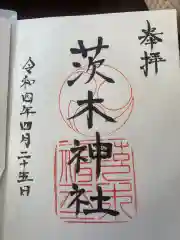 奉拝
茨木神社
令和四年四月二十五日